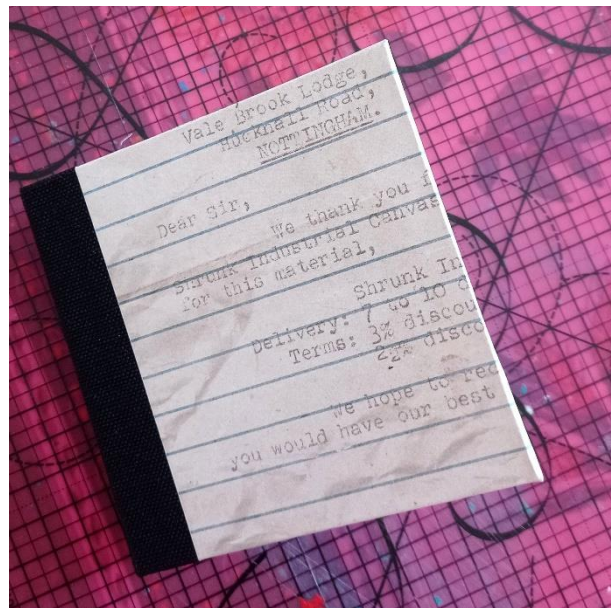 Vale Brook Lodge,
Hucknall Road,
NOTTINGHAM.
Dear Sir,
We thank you f
Shrunk Industrial Canvas
for this material,
Shrunk In
Delivery: 7 to 10 d
Terms: 3% discou
2½% disco
We hope to rec
you would have our best